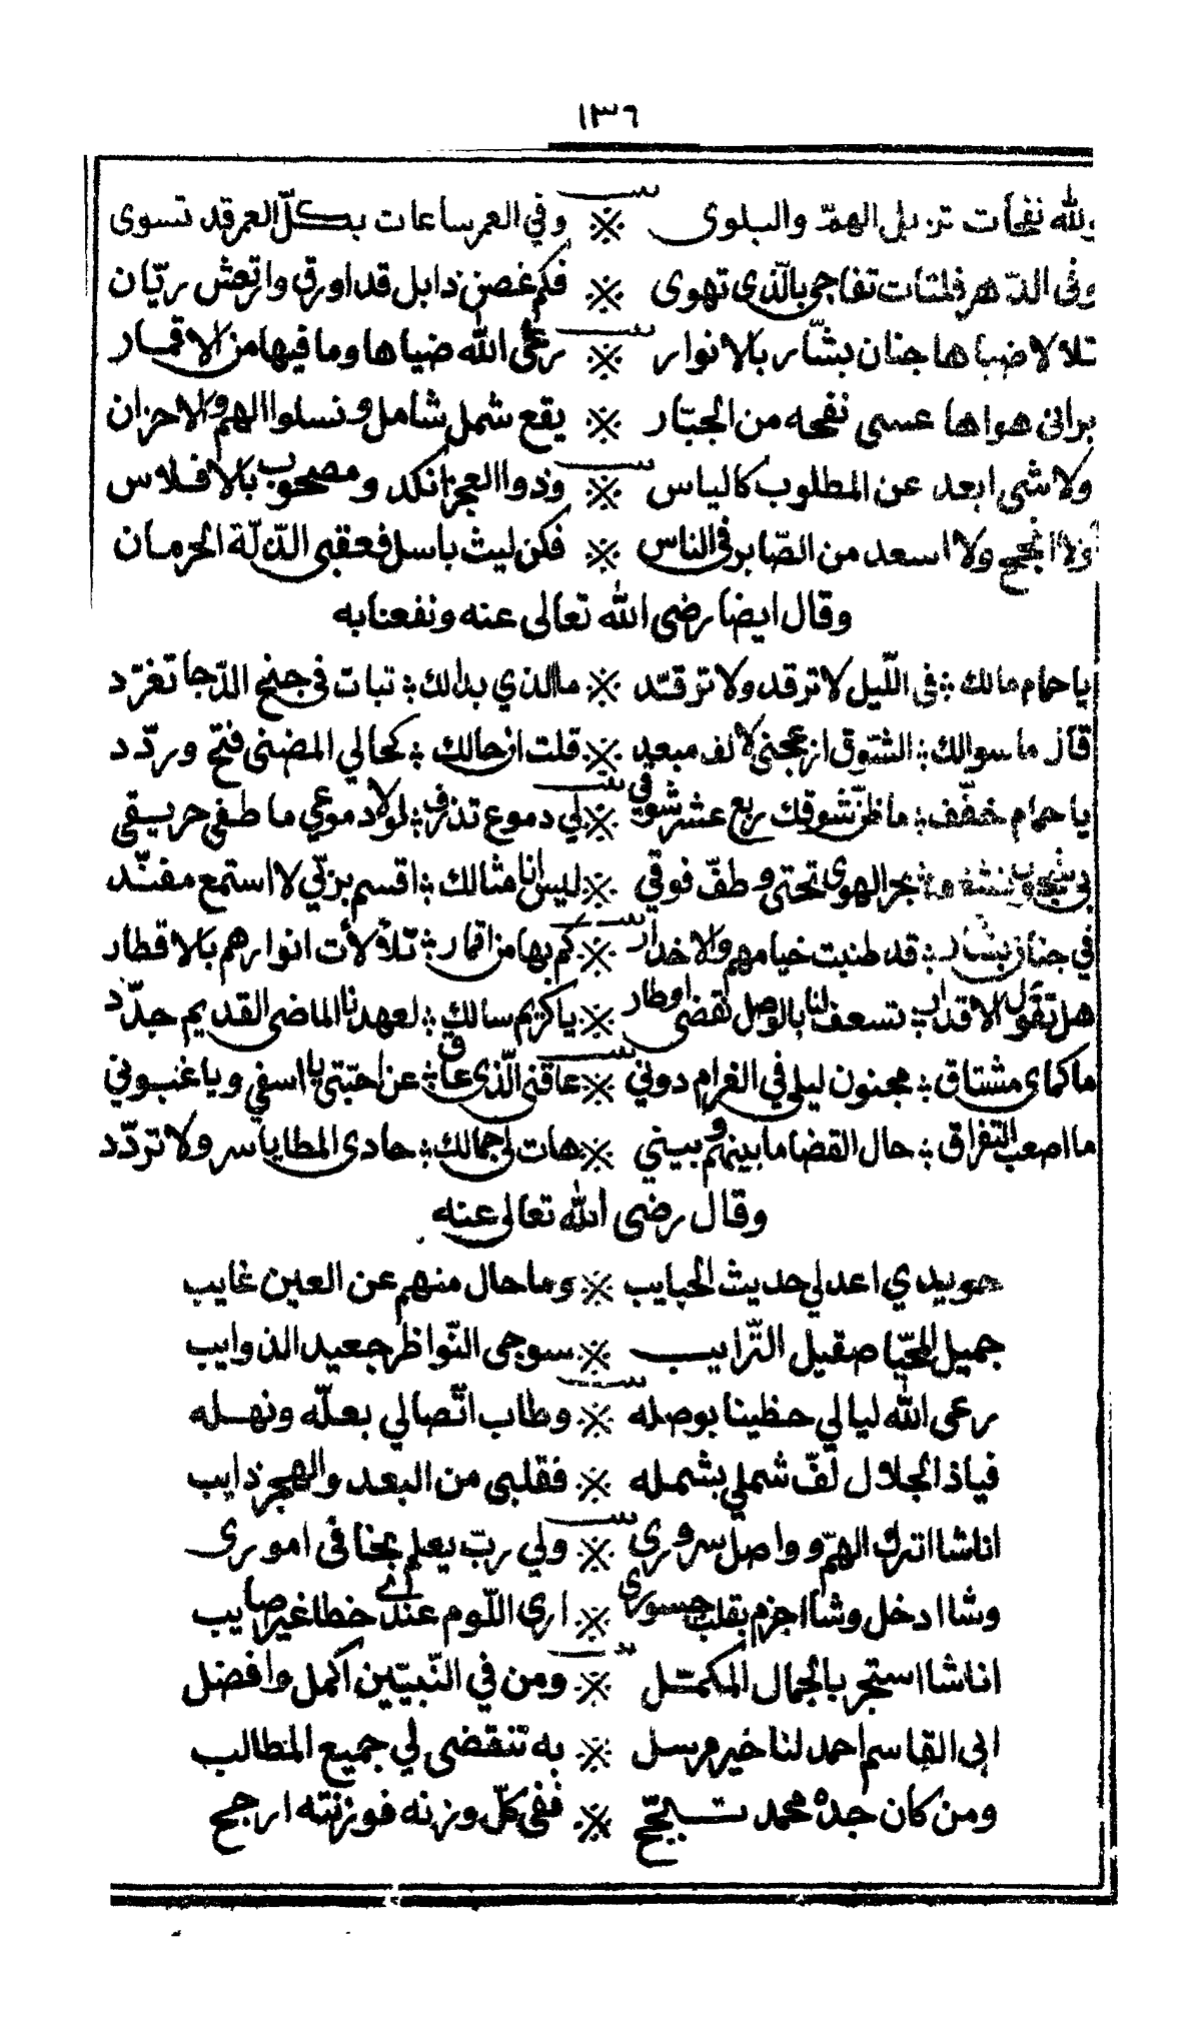 ١٣٦
ولله نفحات تزيل الهمّ والبلوى ※ وفي العمر ساعات بكلّ العمر قد تسوى
وفى الدّهر فلتات تفاجي بالّذي تهوى ※ فكم غصن ذابل قد اورق وارتعش ريّان
تلالا ضياها جنان بشّار بالانوار ※ رعى الله ضياها وما فيها من الاقمار
براني هواها عسى نفحه من الجبّار ※ يقع شمل شامل ونسلوا الهم والاحزان
ولا شي ابعد عن المطلوب كالياس ※ وذوا العجز انكد ومصحوب بالافلاس
ولا انجح ولا اسعد من الصّابر فى الناس ※ فكن ليث باسل فعقبى الذّلّة الحرمان
وقال ايضا رضى الله تعالى عنه ونفعنا به
يا حمام مالك ؛ فى اللّيل لا ترقد ولا ترقّد ※ ما الذي بدالك ؛ تبات فى جنح الدّجا تغرّد
قال ما سوالك ؛ الشّوق ازعجني لالف مبعد ※ قلت از حالك ؛ كحالي المضنى فتح وردّد
يا حمام خفّف ؛ ما ظنّ شوقك ربع عشر شوقي ※ لي دموع تذرف ؛ لولا دموعي ما طفى حريقى
بحر الهوى تحتى وطفّ فوقي ※ ليس انا مثالك ؛ اقسم بربّي لا استمع مفنّد
في جنان بشّار ؛ قد طنبت خيامهم والاخدار ※ كم بها من اقمار ؛ تلألأت انوارهم بالاقطار
هل تقول الاقدار ؛ تسعف لنا بالوصل نقضى اوطار ※ يا كريم سالك ؛ لعهدنا الماضى القديم جدّد
ما كماى مشتاق ؛ مجنون ليلى في الغرام دوني ※ عاقنى الّذى عاق ؛ عن احبّتى يا اسفي ويا غبوني
ما اصعب التفراق ؛ حال القضا ما بينهم وبيني ※ هات لي جمالك ؛ حادى المطايا سر ولا تردّد
وقال رضى الله تعالى عنه
حويدي اعد لي حديث الحبايب ※ وما حال منهم عن العين غايب
جميل المحيّا صقيل التّرايب ※ سوجى النّواظر جعيد الذوايب
رعى الله ليالي حظينا بوصله ※ وطاب اتّصالي بعلّه ونهله
فياذ الجلال لفّ شملي بشمله ※ فقلبى من البعد والهجر ذايب
انا شا اترك الهمّ وواصل سروري ※ ولي ربّ يعلم بخافى امورى
وشا ادخل وشا اجزم بقلب جسورى ※ ارى اللّوم عندي خطا غير صايب
انا شا استجر بالجمال المكمّل ※ ومن في النّبيّين اكمل وافضل
ابى القاسم احمد لنا خير مرسل ※ به تنقضى لي جميع المطالب
ومن كان جده محمد تبجّح ※ ففى كلّ وزنه فوزنته ارجح